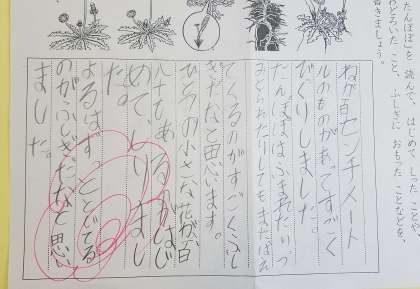 たんぽぽを読んで、はじめてしったことや、
おどろいたこと、ふしぎにおもったことなどを、
書きましょう。
ねが百センチメート
ルのものがあってすごく
びくりしました。
たんぽぽはふまれたりつ
みとられたりしてもまたはえ
てくるのがすごくふし
ぎだなと思います。
ひとつの小さな花が百
八十もあるのがはじ
めて、しりまし
た。
よるはずっととじてる
のがふしぎだなと思い
ました。